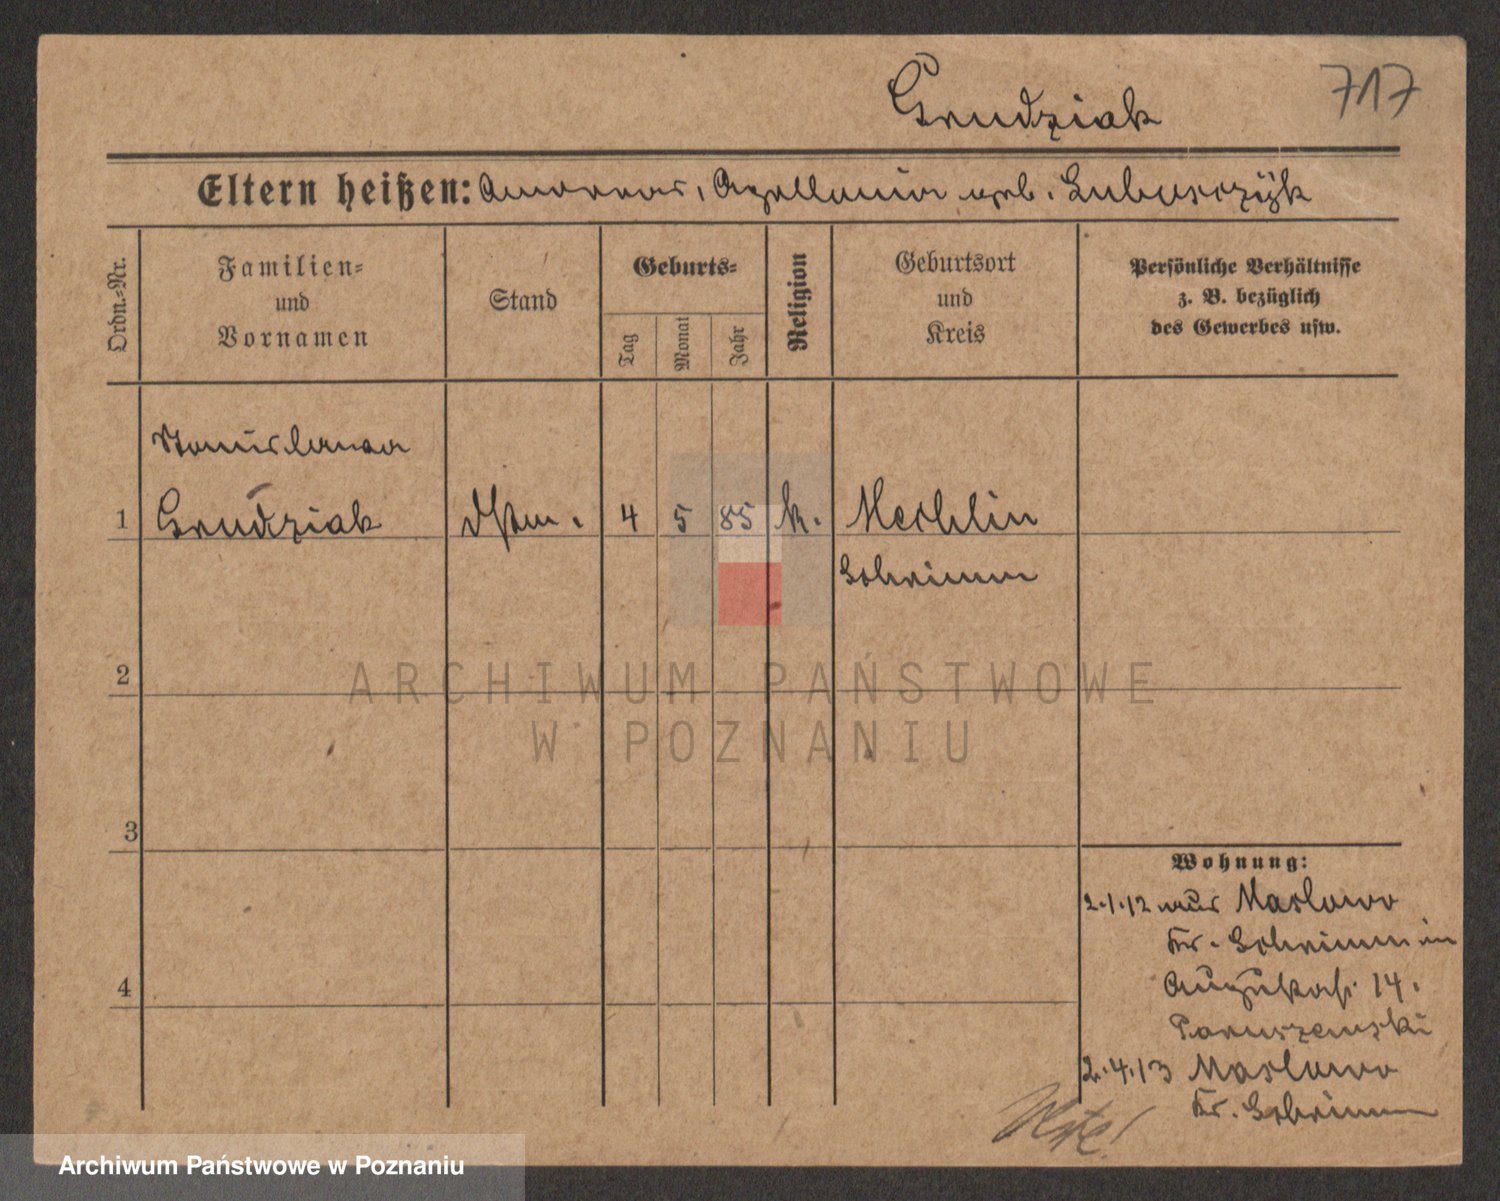 Grudziak 717
Eltern heißen: Andreas, Apollonia geb.
Ordn.-Nr.
Familien-
und
Vornamen
Stand
Geburts-
Tag
Monat
Jahr
Religion
Geburtsort
und
Kreis
Persönliche Verhältnisse
z. B. bezüglich
des Gewerbes usw.
Stanislawa
1 Grudziak 4 5 85 k. Mechlin
Schrimm
2
ARCHIWUM PAŃSTWOWE
W POZNANIU
3
Wohnung:
2.1.12 aus Maslowo
Kr. Schrimm in
4
14.
2.4.13 Maslowo
Kr. Schrimm
Archiwum Państwowe w Poznaniu